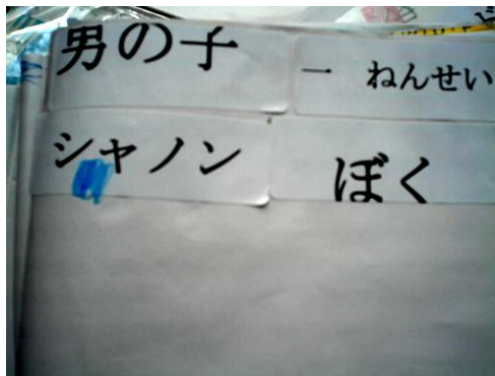 男の子
一 ねんせい
シャノン
ぼく